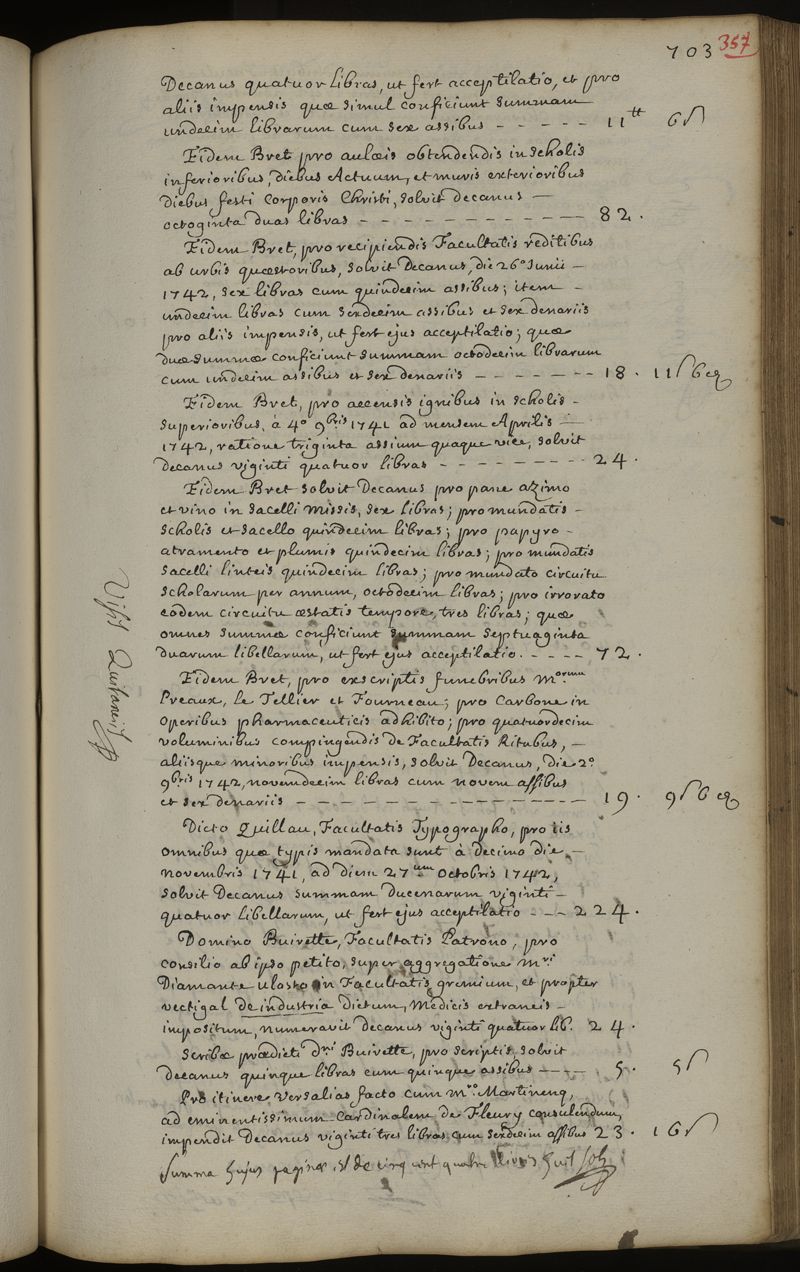 703 357
Decanus quatuor libras, ut fert acceptilatio, et pro
aliis impensis quæ simul conficiunt summam
undecim librarum cum sex assibus - - - - - - 11tt 6 s
Eidem Bret pro aulæis obtendendis in Scholis
inferioribus, diebus Actuum, et muris exterioribus
diebus festi Corporis Christi, solvit decanus —
octoginta duas libras - - - - - - - - - - 82.
Eidem Bret, pro recipiendis Facultatis reditibus
ab urbis quæstoribus, solvit Decanus, die 26º Junii —
1742, sex libras cum quindecim assibus; item —
undecim libras cum sexdecim assibus et sex denariis
pro aliis impensis, ut fert ejus acceptilatio; quæ
duæ summæ conficiunt summam octodecim librarum
cum undecim assibus et sex denariis - - - - - - 18. 11 s 6 d
Eidem Bret, pro accensis ignibus in scholis -
superioribus, à 4º 9bris 1741 ad mensem Aprilis —
1742, ratione triginta assium quaque vice, solvit
decanus viginti quatuor libras - - - - - - - - 24.
Eidem Bret solvit Decanus pro pane azimo
et vino in sacelli missis, sex libras; pro mundatis -
Scholis et sacello quindecim libras; pro papyro -
atramento et plumis quindecim libras; pro mundatis
sacelli linteis quindecim libras; pro mundato circuitu
Scholarum per annum, octodecim libras; pro irrorato
eodem circuitu æstatis tempore, tres libras; quæ
omnes summæ conficiunt summam septuaginta
duarum libellarum, ut fert ejus acceptilatio. - - - - 72.
Eidem Bret, pro exscriptis funebribus Mrorum
Preaux, Le Tellier et Fourneau; pro Carbone in
operibus pharmaceuticis adhibito; pro quatuordecim
voluminibus compingendis de Facultatis Ritubus, —
aliisque minoribus impensis, solvit Decanus, die 2º
9bris 1742, novemdecim libras cum novem assibus
et sex denariis - - - - - - - - - - - - - 19. 9 s 6 d
Dicto Quillau, Facultatis Typographo, pro iis
omnibus quæ typis mandata sunt à decimo die —
novembris 1741, ad diem 27um octobris 1742,
solvit Decanus summam ducenarum viginti —
quatuor libellarum, ut fert ejus acceptilatio - - - 224.
Domino Buirette, Facultatis Patrono, pro
consilio ab ipso petito, super aggregatione Mri
Diamante in Facultatis gremium, et propter
vectigal de industria dictum, Medicis extraneis —
impositum, numeravit decanus viginti quatuor lib. 24.
Scribæ prædicti Dni Buirette, pro scriptis, solvit
decanus quinque libras cum quinque assibus - - - - 5. 5 s
Pro itinere Versalias facto cum Mro Martinenq,
ad eminentissimum Cardinalem de Fleury consulendum,
impendit Decanus viginti tres libras cum sexdecim assibus 23. 16 s
Summa hujus paginæ est de cinq cent quatre livres huit sols